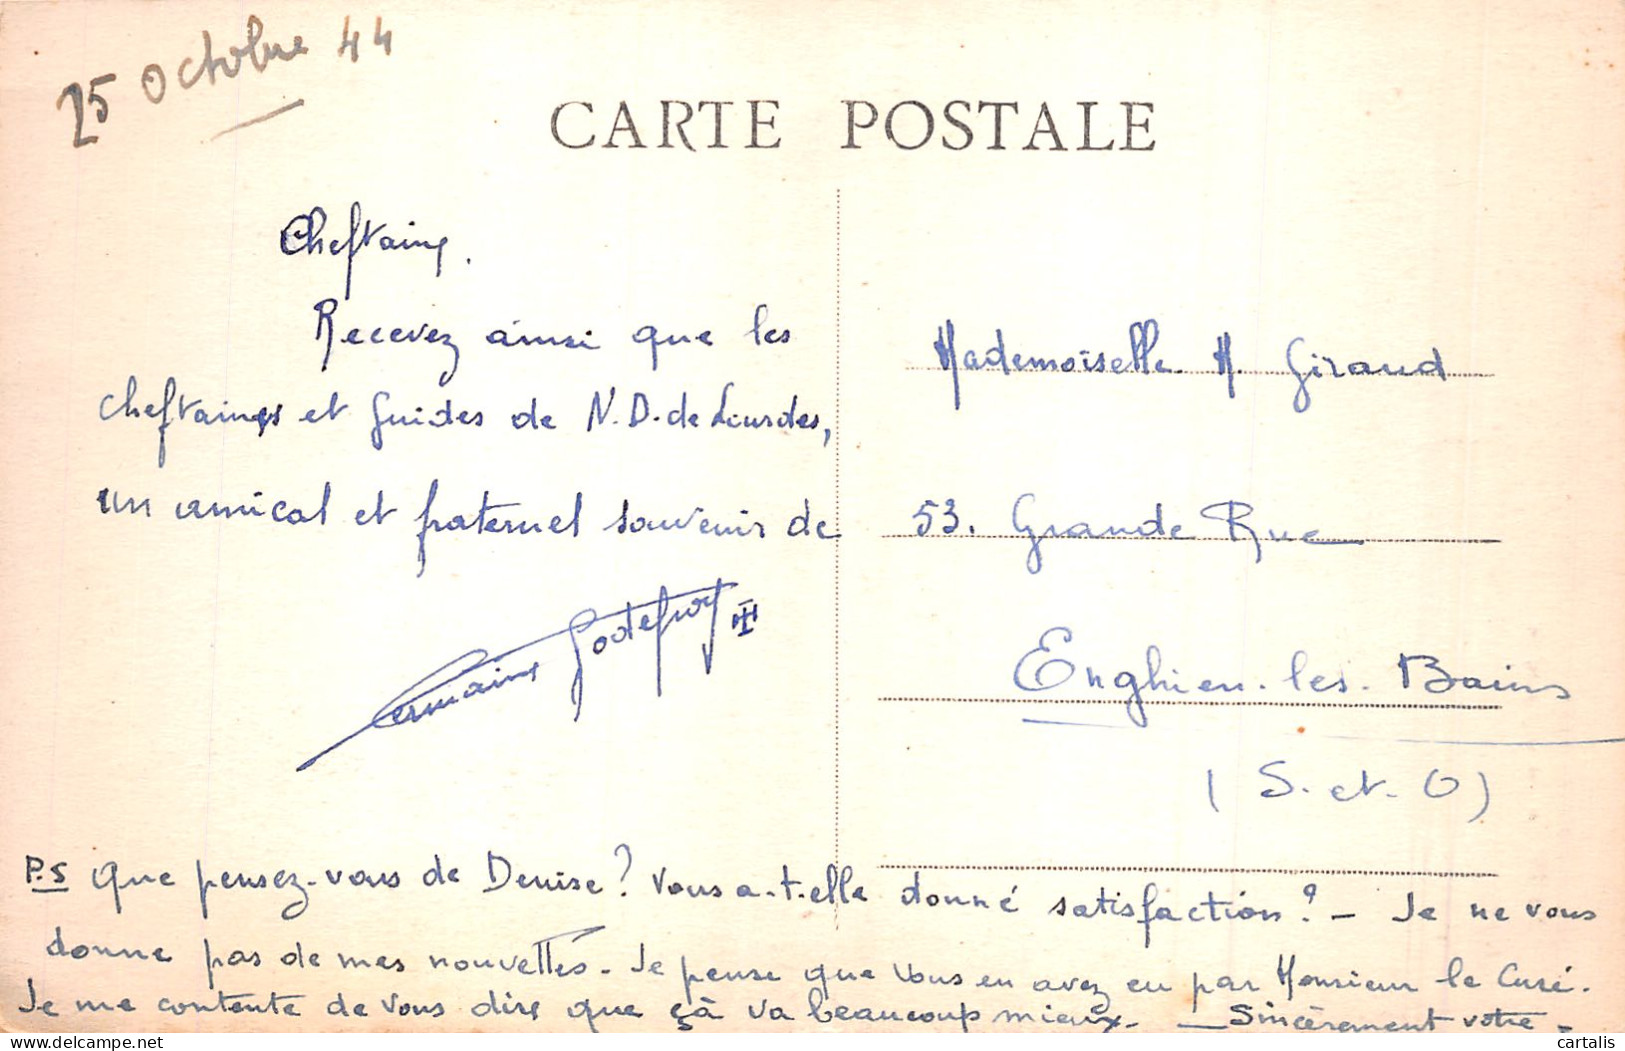 25 octobre 44
CARTE POSTALE
Cheftaine.
Recevez ainsi que les
cheftaines et guides de N.D. de Lourdes,
un amical et fraternel souvenir de
Germaine Godefroy
Mademoiselle M. Giraud
53. Grande Rue
Enghien-les-Bains
(S.-et-O)
P.S Que pensez-vous de Denise? Vous a-t-elle donné satisfaction? - Je ne vous
donne pas de mes nouvelles. Je pense que vous en avez eu par Monsieur le Curé.
Je me contente de vous dire que çà va beaucoup mieux. - Sincèrement vôtre -
cartalis